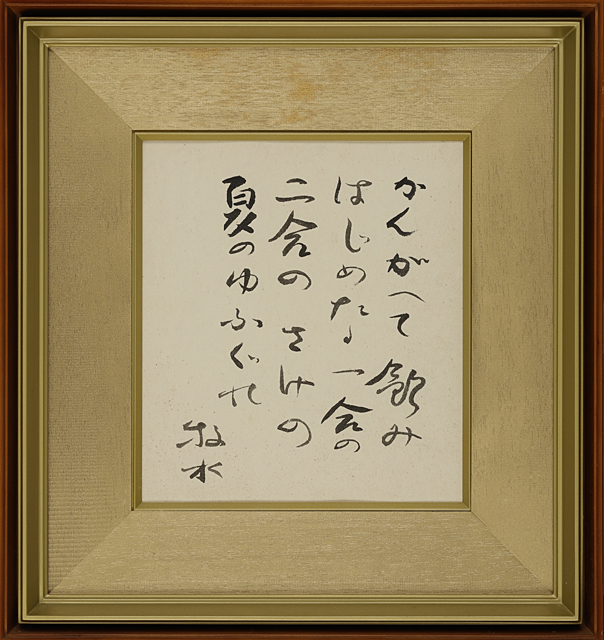 かんがへて飲み
はじめたる一合の
二合のさけの
夏のゆふぐれ
牧水